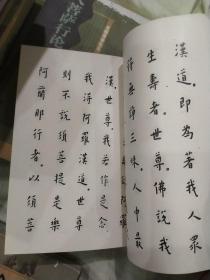 漢道。即為著我人眾
生壽者。世尊。佛說我
得無諍三昧。人中最
漢。世尊。我若作是念
我得阿羅漢道。世尊
則不說須菩提是樂
阿蘭那行者。以須菩